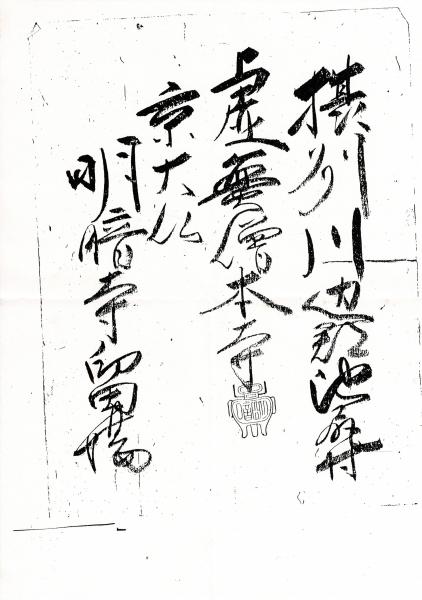 摂州川辺郡池尻村
虚無僧本寺
京大仏
明暗寺留場